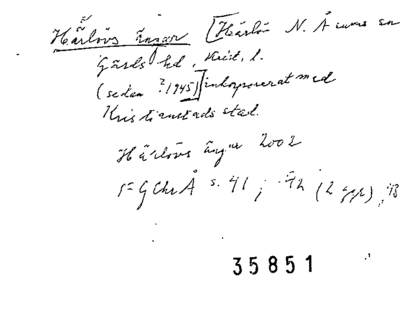 Härlövs ängar [Härlöv N. Åsums sn
Gärds hd, Krist. l.
(sedan ? 1945)] inkorporerat med
Kristianstads stad.
Härlövs ängar 2002
s. 41; 42 (2 ggr), 43
35851